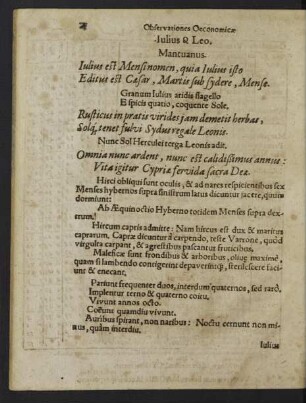 Observationes Oeconomicæ
Iulius & Leo.
Mantuanus.
Iulius est Mensi nomen, quia Iulius isto
Editus est Cæsar, Martis sub sydere, Mense.
Granum Iulius aridis flagello
E spicis quatio, coquente Sole,
Rusticus in pratis virides jam demetit herbas,
Solq, tenet fulvi Sydus regale Leonis.
Nunc Sol Herculei terga Leonis adit.
Omnia nunc ardent, nunc est calidissimus annus:
Vita igitur Cypriæ fervida sacra Deæ.
Hirci obliqui sunt oculis, & ad nares respicientibus sex
Menses hybernos supra sinistrum latus dicuntur jacere, quum
dormiunt:
Ab Æquinoctio Hyberno totidem Menses supra dex-
trum.
Hircum capris admitte: Nam hircus est dux & maritus
caprarum. Capræ dicuntur à carpendo, teste Varrone, quòd
virgulta carpant, & agrestibus pascantur fruticibus.
Maleficæ sunt frondibus & arboribus, olivę maximè,
quam si lambendo contigerint depaverintq́;, sterilescere faci-
unt & enecant.
Pariunt frequenter duos, interdum quaternos, sed rarò.
Implentur terno & quaterno coitu.
Vivunt annos octo.
Coëunt quamdiu vivunt.
Auribus spirant, non naribus: Noctu cernunt non mi-
nus, quàm interdiu.
Iulius